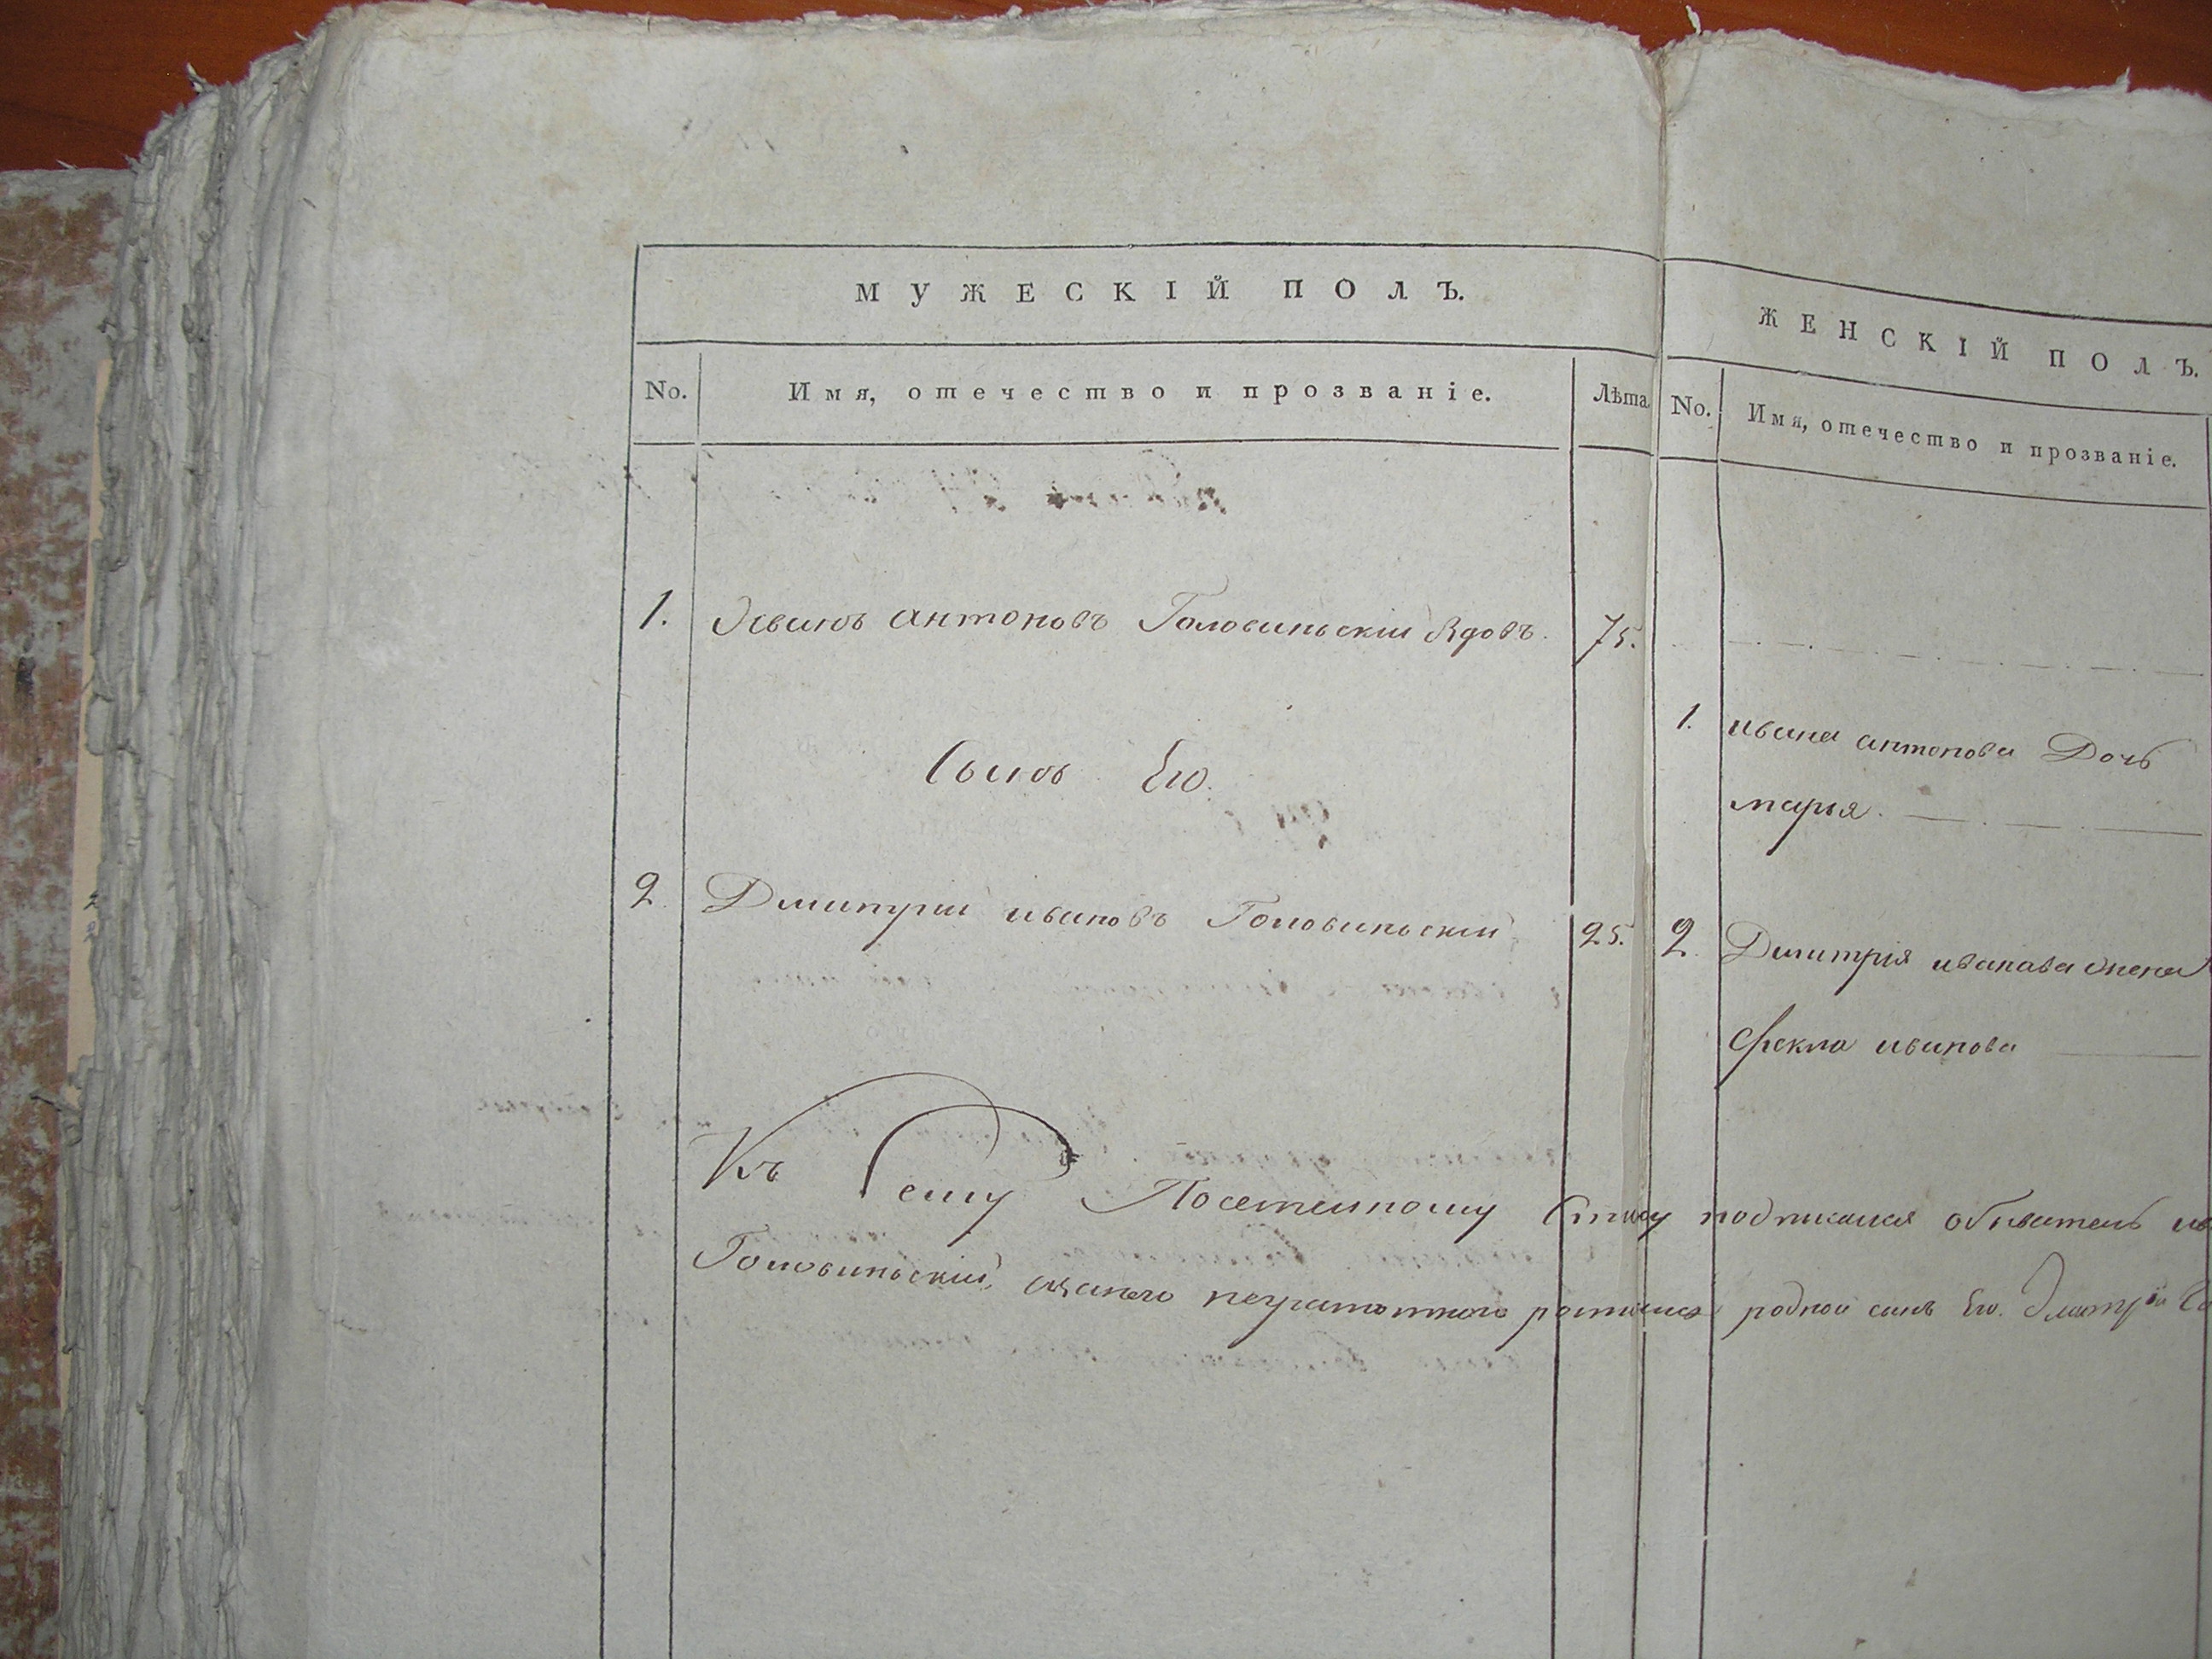 МУЖЕСКІЙ ПОЛЪ.
No. Имя, отечество и прозваніе. Лѣта
1. Иванъ антоновъ Головиньскій вдовъ. 75.
Сынъ Его.
2 Дмитрій ивановъ Головиньскій 25.
ЖЕНСКІЙ ПОЛЪ.
No. Имя, отечество и прозваніе.
1. ивана антонова Дочь
марья.
2. Дмитрія иванава жена
Фекла иванова
Къ сему Посемейному Списку подписался обыватель
Головиньскій, неграмотнаго родной сынъ Его. Дмитрій